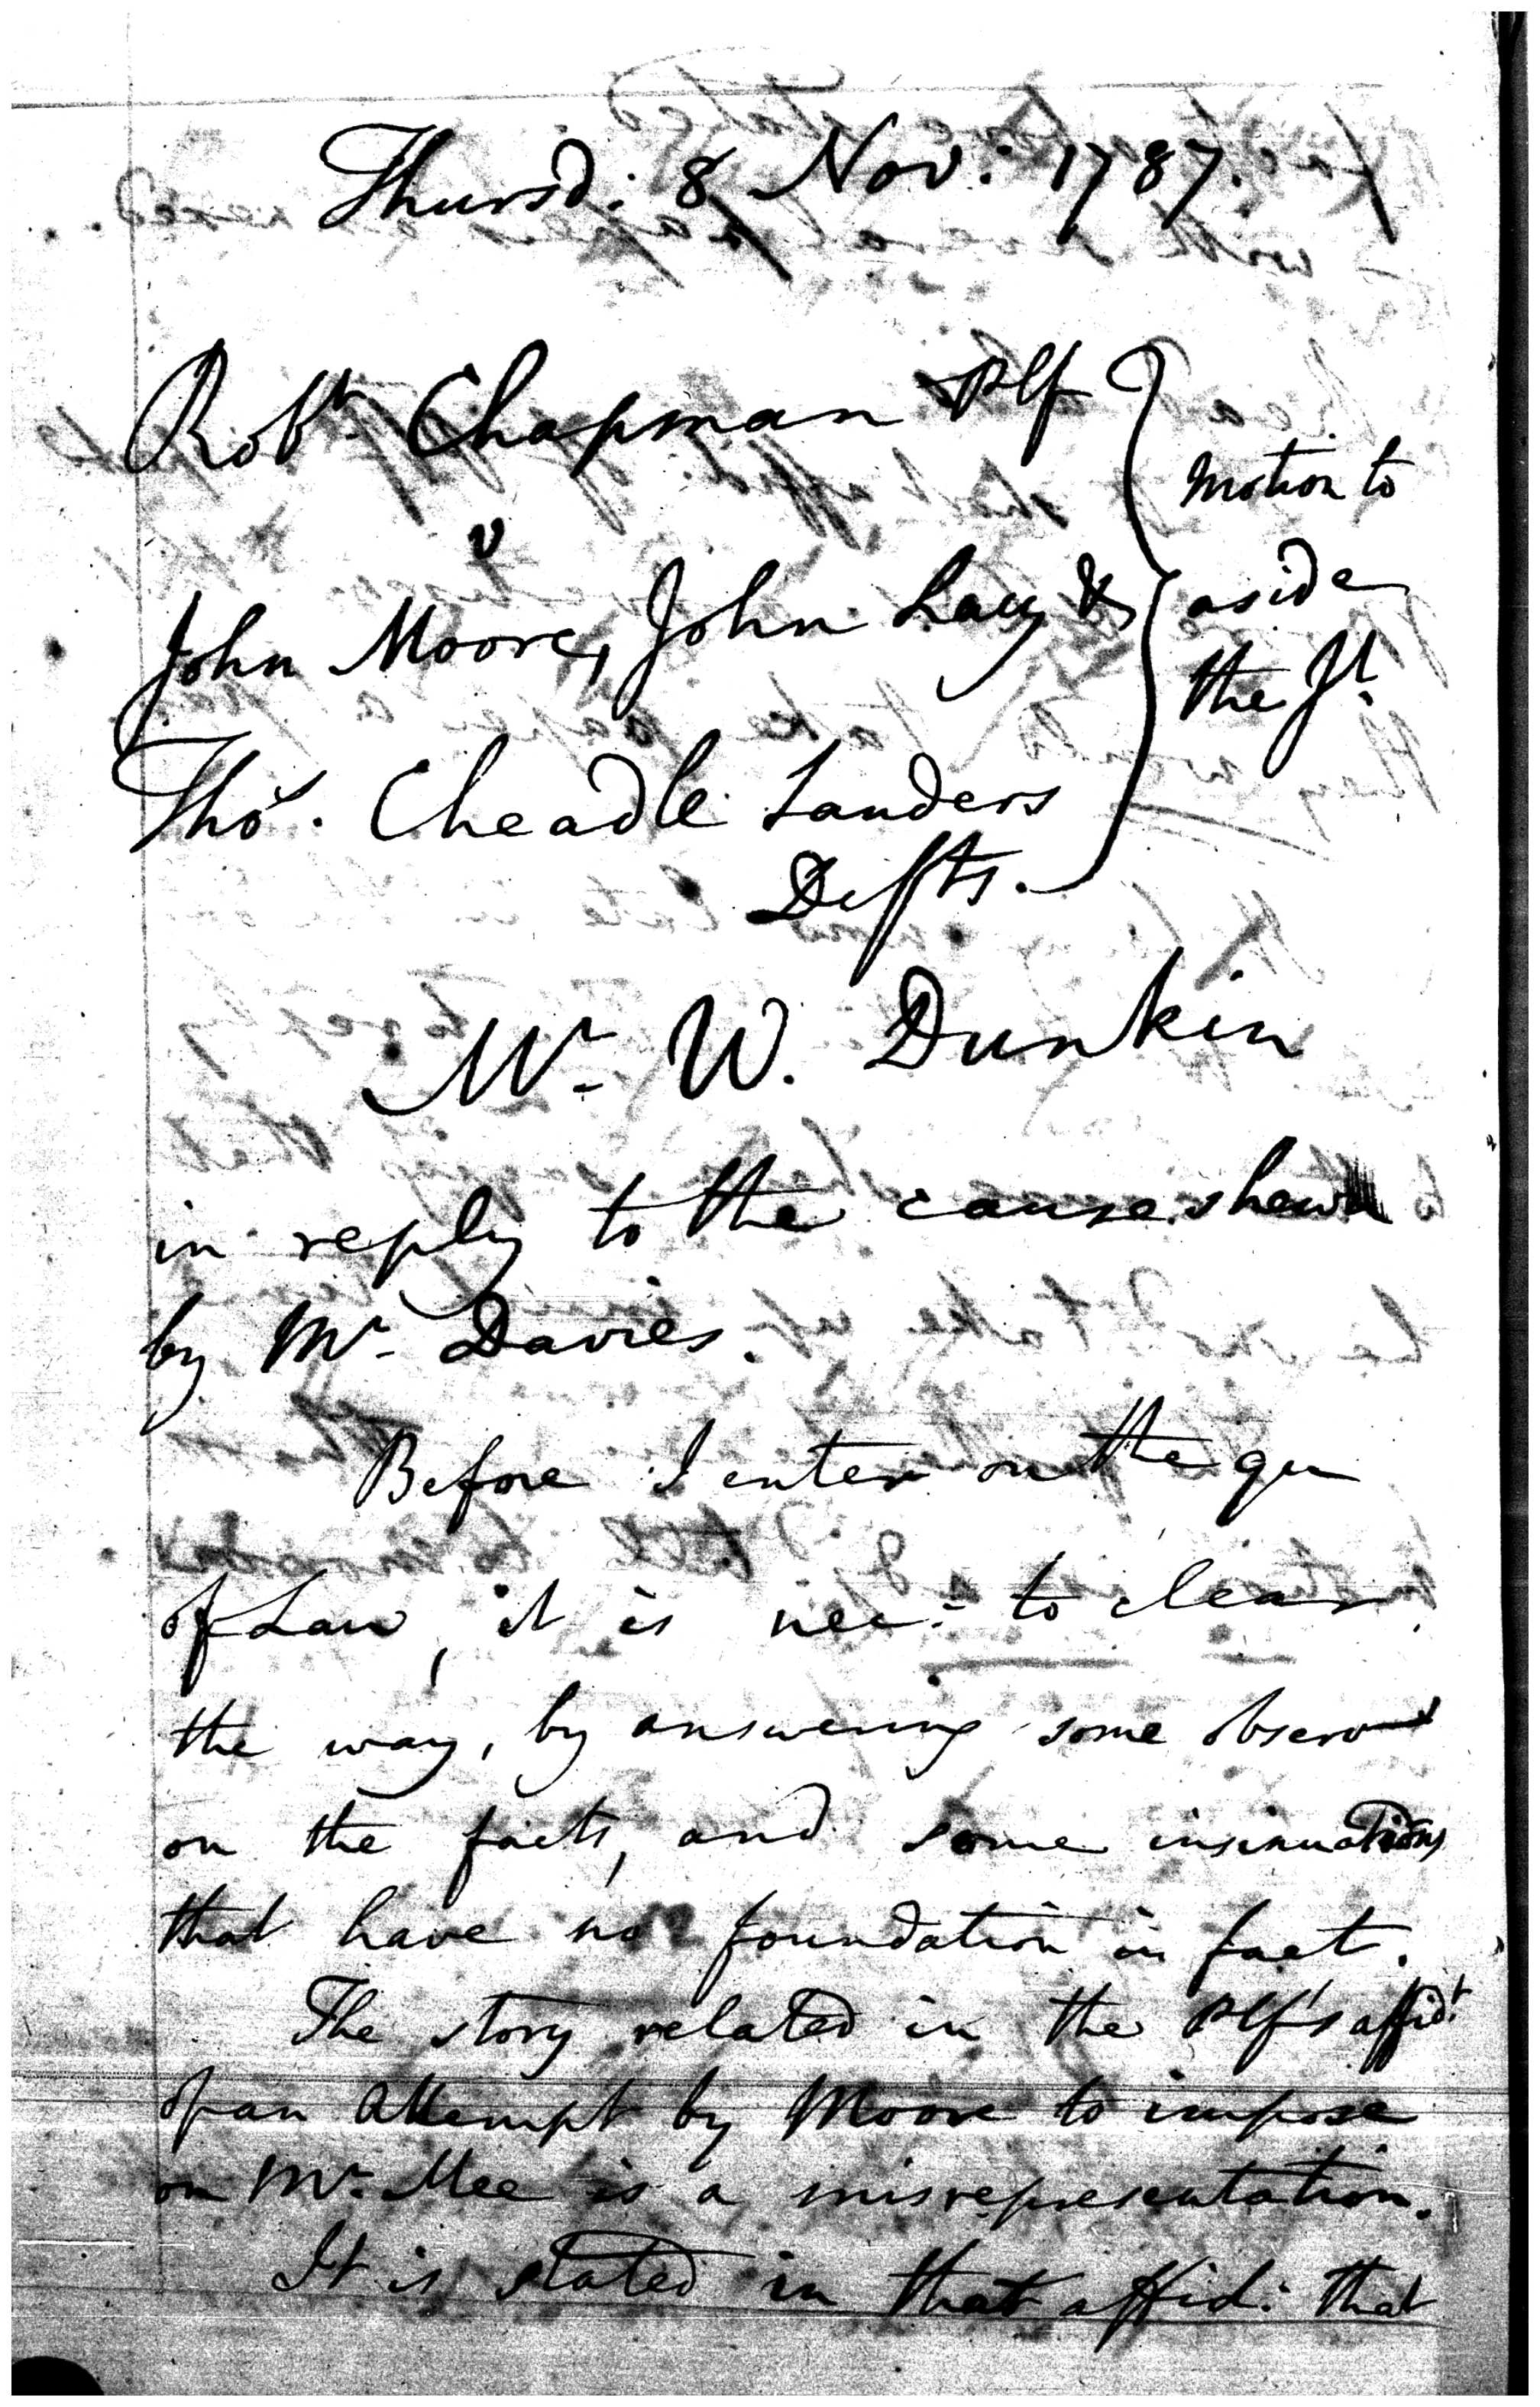 Thursd: 8 Nov: 1787.
Robt. Chapman Plf
v
John Moore, John Lacy &
Thos. Cheadle Sanders
Defts.
Motion to
aside
the Jt.
Mr. W. Dunkin
in reply to the cause shewn
by Mr. Davies.
Before I enter on the qu
of Law, it is nec: to clear
the way, by answering some observ
on the facts, and some insinuations
that have no foundation in fact.
The story related in the Plf's affidt.
of an attempt by Moore to impose
on Mr. Mee is a misrepresentation.
It is stated in that affid: that